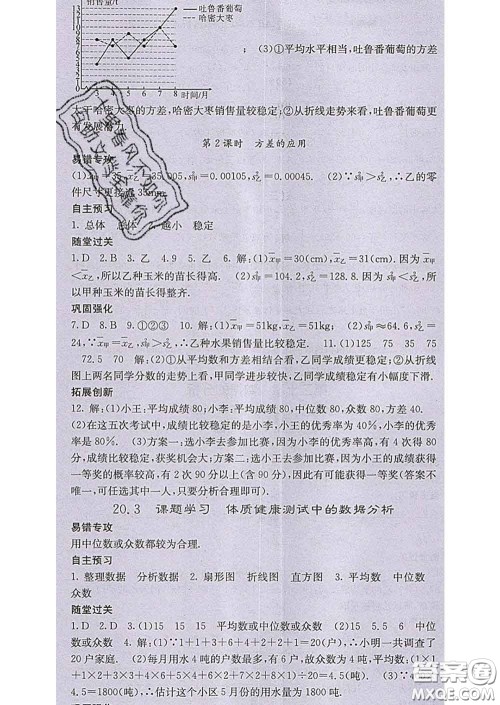 销售量/t
吐鲁番葡萄
哈密大枣
13
12
11
10
9
8
7
6
5
4
3
2
1
0 1 2 3 4 5 6 7 8 时间/月
; (3)①平均水平相当,吐鲁番葡萄的方差
大于哈密大枣的方差,哈密大枣销售量较稳定;②从折线走势来看,吐鲁番葡萄更
有发展潜力.
第2课时 方差的应用
易错专攻
=0.00105, =0.00045. (2)∵s²甲>s²乙,∴乙的零
件尺寸更接近35mm.
自主预习
1. 总体 总体 2. 越小 稳定
随堂过关
1. D 2. B 3. 4.9 5. 乙 6. 解:(1)x̄甲=30(cm), x̄乙=31(cm). 因为x̄甲
<x̄乙,所以乙种玉米的苗长得高. (2)s²甲=104.2, s²乙=128.8. 因为s²甲<s²乙,所
以甲种玉米的苗长得整齐.
巩固强化
7. D 8. B 9. ①②③ 10. 解:(1)x̄甲=51kg, x̄乙=51kg. (2)s²甲≈64.6, s²乙=
24, ∵s²甲>s²乙,∴乙种水果销售量比较稳定. 11. (1)125 75 35 75
72.5 70 解:(2)①从平均数和方差相结合看,乙同学成绩更稳定;②从折线
图上两名同学分数的走势上看,甲同学进步较快,乙同学成绩稳定有小幅度下滑.
拓展创新
12. 解:(1)小王:平均成绩80;小李:平均成绩80,中位数80,众数80,方差40.
(2)在这五次考试中,成绩比较稳定的是小李,小王的优秀率为40%,小李的优秀
率是80%. (3)方案一:选小李去参加比赛,因为小李的优秀率高,有4次得80
分,成绩比较稳定,获奖机会大;方案二:选小王去参加比赛,因为小王的成绩获得
一等奖的概率较高,有2次90分以上(含90分),因此有可能获得一等奖(答案不
唯一,可任选其中一人,只要分析合理即可).
20.3 课题学习 体质健康测试中的数据分析
易错专攻
用中位数或众数都较为合理.
自主预习
1. 整理数据 分析数据 2. 扇形图 折线图 直方图 3. 平均数 中位数
众数
随堂过关
1. D 2. D 3. (1)15 15 15 平均数或中位数或众数 (2)15 5.5 6 中位
数或众数 4. 解:(1)∵1+1+3+6+4+2+2+1=20(户),∴小明一共调查了
20户家庭. (2)每月用水4吨的户数最多,有6户,故众数为4吨;平均数:(1×1
+1×2+3×3+4×6+5×4+6×2+7×2+8×1)÷20=4.5(吨). (3)∵
4.5=1800(吨),∴估计这个小区5月份的用水量为1800吨.
答案圈
MXQE.COM